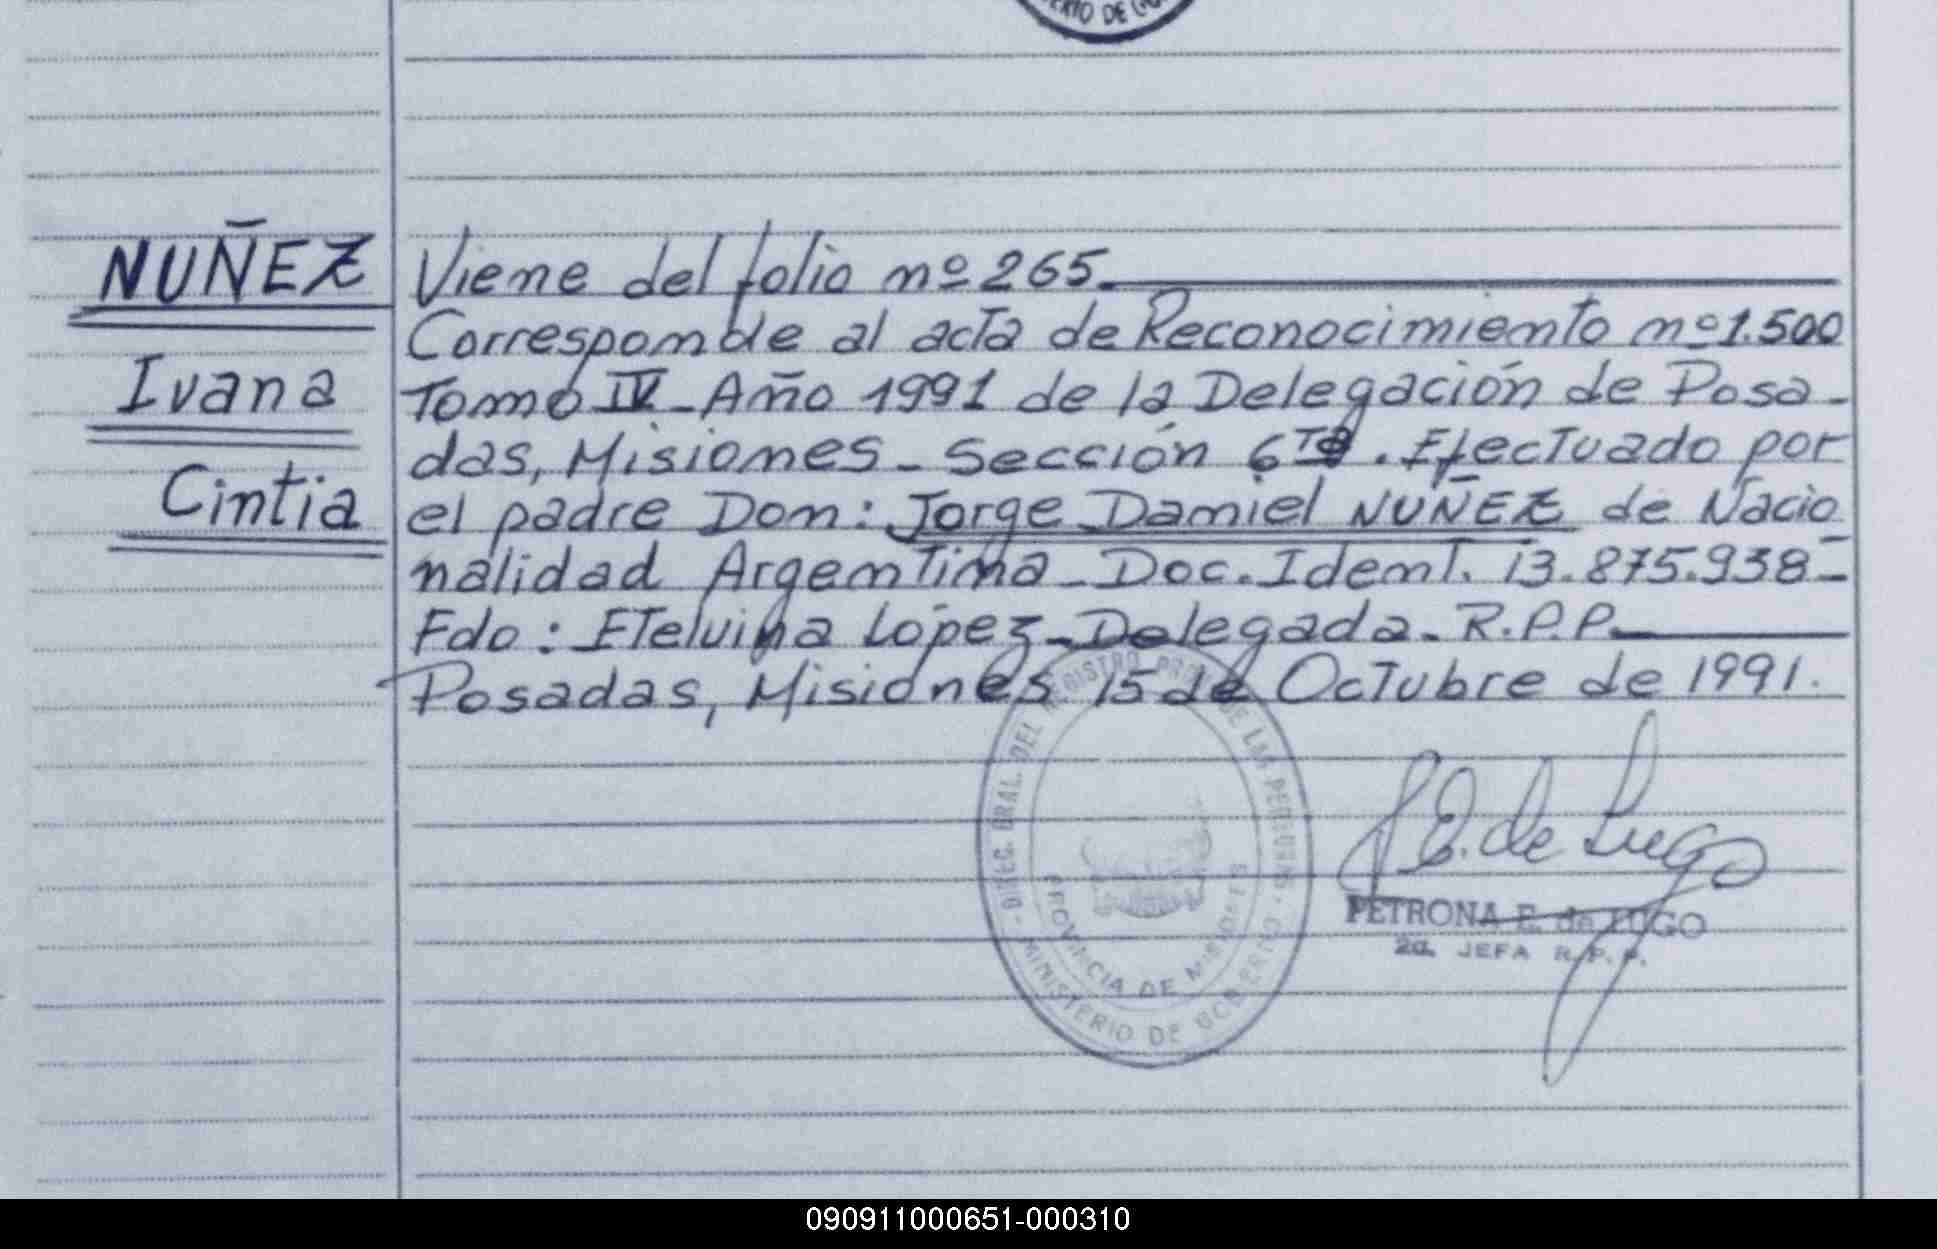 ERIO DE GO
NUÑEZ
Ivana
Cintia
Viene del folio nº 265.
Corresponde al acta de Reconocimiento nº 1.500
Tomo IV - Año 1991 de la Delegación de Posa-
das, Misiones - Sección 6ta. Efectuado por
el padre Don: Jorge Daniel NUÑEZ de Nacio
nalidad Argentina - Doc. Ident. 13.875.938-
Fdo: Etelvina López - Delegada - R.P.P.
Posadas, Misiones 15 de Octubre de 1991.
- DIREC. GRAL. DEL REGISTRO PROV. DE LAS PERSONAS -
MINISTERIO DE GOBIERNO
PROVINCIA DE MISIONES
P E. de Lugo
PETRONA E. de LUGO
2a. JEFA R.P.P.
090911000651-000310